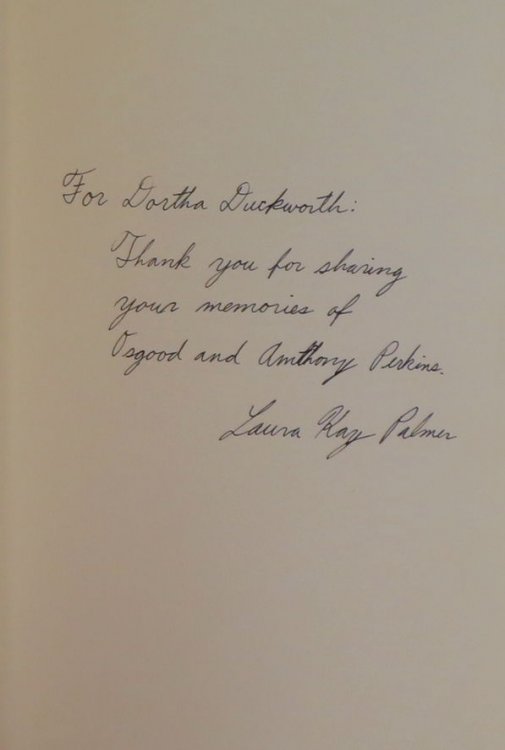 For Dortha Duckworth:
Thank you for sharing
your memories of
Osgood and Anthony Perkins.
Laura Kay Palmer